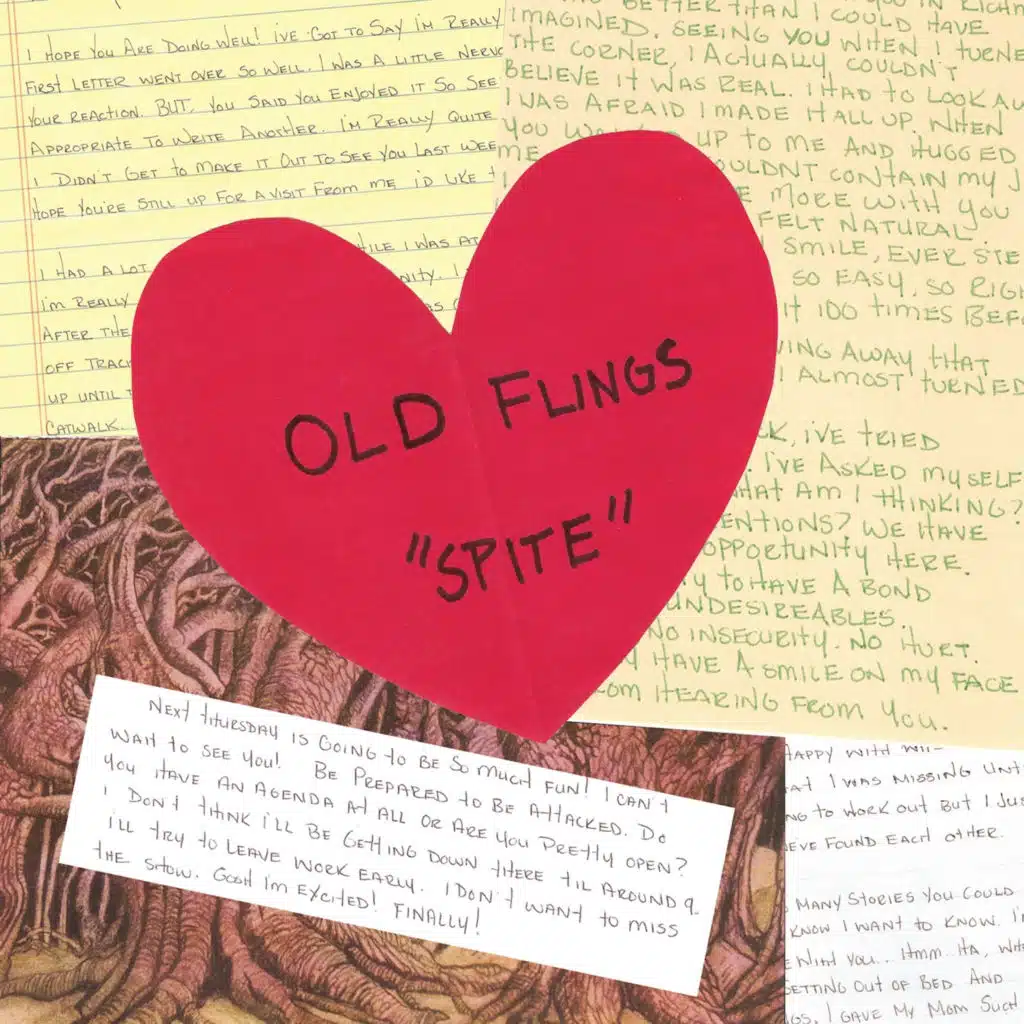 I HOPE YOU ARE DOING WELL! I'VE GOT TO SAY I'M REALLY
FIRST LETTER WENT OVER SO WELL. I WAS A LITTLE NERVO
YOUR REACTION. BUT, YOU SAID YOU ENJOYED IT SO SEE
APPROPRIATE TO WRITE ANOTHER. I'M REALLY QUITE
I DIDN'T GET TO MAKE IT OUT TO SEE YOU LAST WEE
HOPE YOU'RE STILL UP FOR A VISIT FROM ME I'D LIKE
I HAD A LOT
HILE I WAS AT
I'M REALLY
NITY. I
AFTER THE
OFF TRAC
UP UNTIL
CATWALK.
BETTER THAN I COULD HAVE
IMAGINED. SEEING YOU WHEN I TURNE
THE CORNER, I ACTUALLY COULDN'T
BELIEVE IT WAS REAL. I HAD TO LOOK AW
I WAS AFRAID I MADE IT ALL UP. WHEN
YOU UP TO ME AND HUGGED
ME OULDNT CONTAIN MY J
E MORE WITH YOU
FELT NATURAL.
SMILE, EVER STE
SO EASY, SO RIGH
IT 100 TIMES BEF
VING AWAY THAT
I ALMOST TURNED
CK, I'VE TRIED
. I'VE ASKED MYSELF
HAT AM I THINKING?
ENTIONS? WE HAVE
OPPORTUNITY HERE.
Y TO HAVE A BOND
UNDESIREABLES.
NO INSECURITY. NO HURT.
HAVE A SMILE ON MY FACE
OM HEARING FROM YOU.
OLD FLINGS
"SPITE"
NEXT THURSDAY IS GOING TO BE SO MUCH FUN! I CAN'T
WAIT TO SEE YOU! BE PREPARED TO BE ATTACKED. DO
YOU HAVE AN AGENDA AT ALL OR ARE YOU PRETTY OPEN?
I DON'T THINK I'LL BE GETTING DOWN THERE TIL AROUND 9.
I'LL TRY TO LEAVE WORK EARLY. I DON'T WANT TO MISS
THE SHOW. GOSH I'M EXCITED! FINALLY!
HAPPY WITH
AT I WAS MISSING UNTI
NG TO WORK OUT BUT I JUS
EVE FOUND EACH OTHER.
MANY STORIES YOU COULD
KNOW I WANT TO KNOW. I'
E WITH YOU... HMM. HA, WH
GETTING OUT OF BED AND
GS. I GAVE MY MOM SUCH